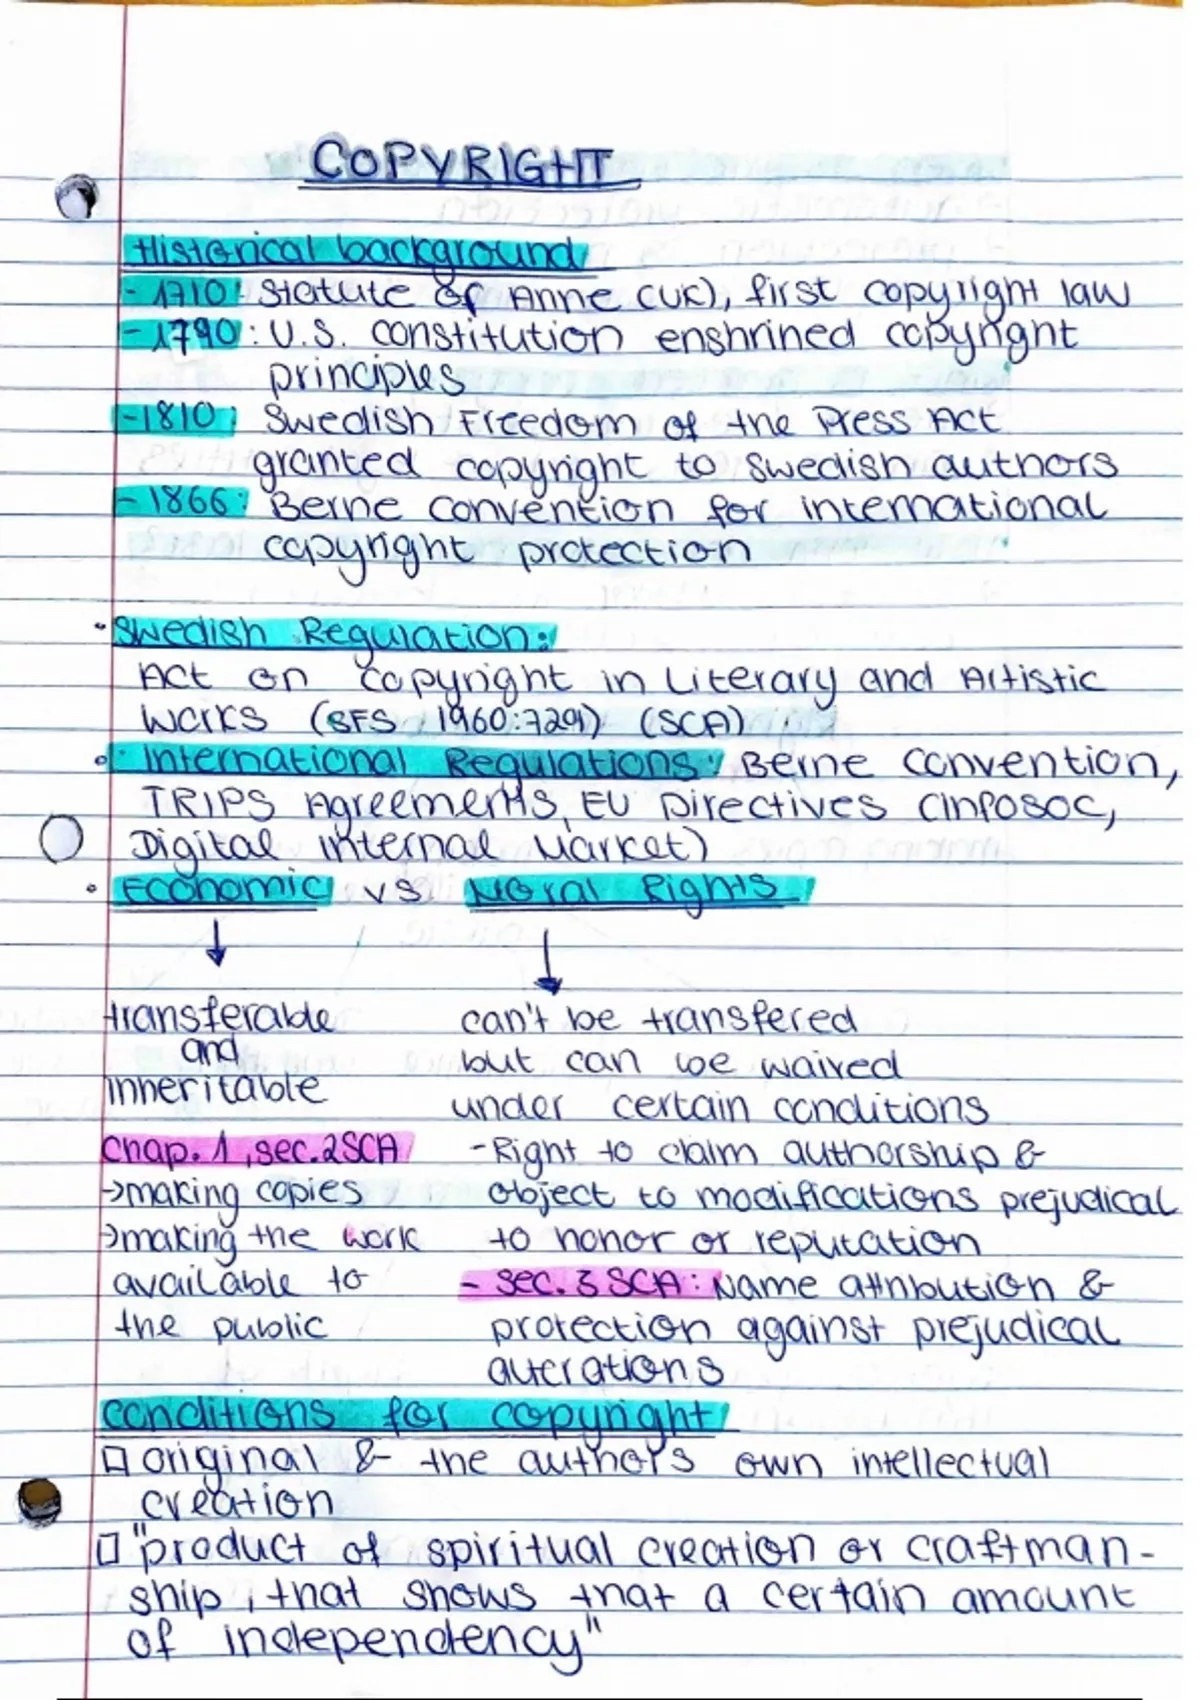 COPYRIGHT
Historical background
- 1710: Statute of Anne (UK), first copyright law
- 1790: U.S. constitution enshrined copyright
principles
- 1810: Swedish Freedom of the Press Act
granted copyright to Swedish authors
- 1866: Berne convention for international
copyright protection
• Swedish Regulation:
Act on copyright in Literary and Artistic
Works (SFS 1960:729) (SCA)
• International Regulations: Berne Convention,
TRIPS Agreements, EU Directives (Infosoc,
Digital internal Market)
• Economic vs Moral Rights
↓ ↓
transferable can't be transfered
and but can be waived
inheritable under certain conditions
Chap. 1, sec. 2 SCA - Right to claim authorship &
→making copies object to modifications prejudical
→making the work to honor or reputation
available to - Sec. 3 SCA: Name attribution &
the public protection against prejudical
alterations
conditions for copyright
□ original & the authors own intellectual
creation
□ "product of spiritual creation or craftman-
ship, that shows that a certain amount
of independency"